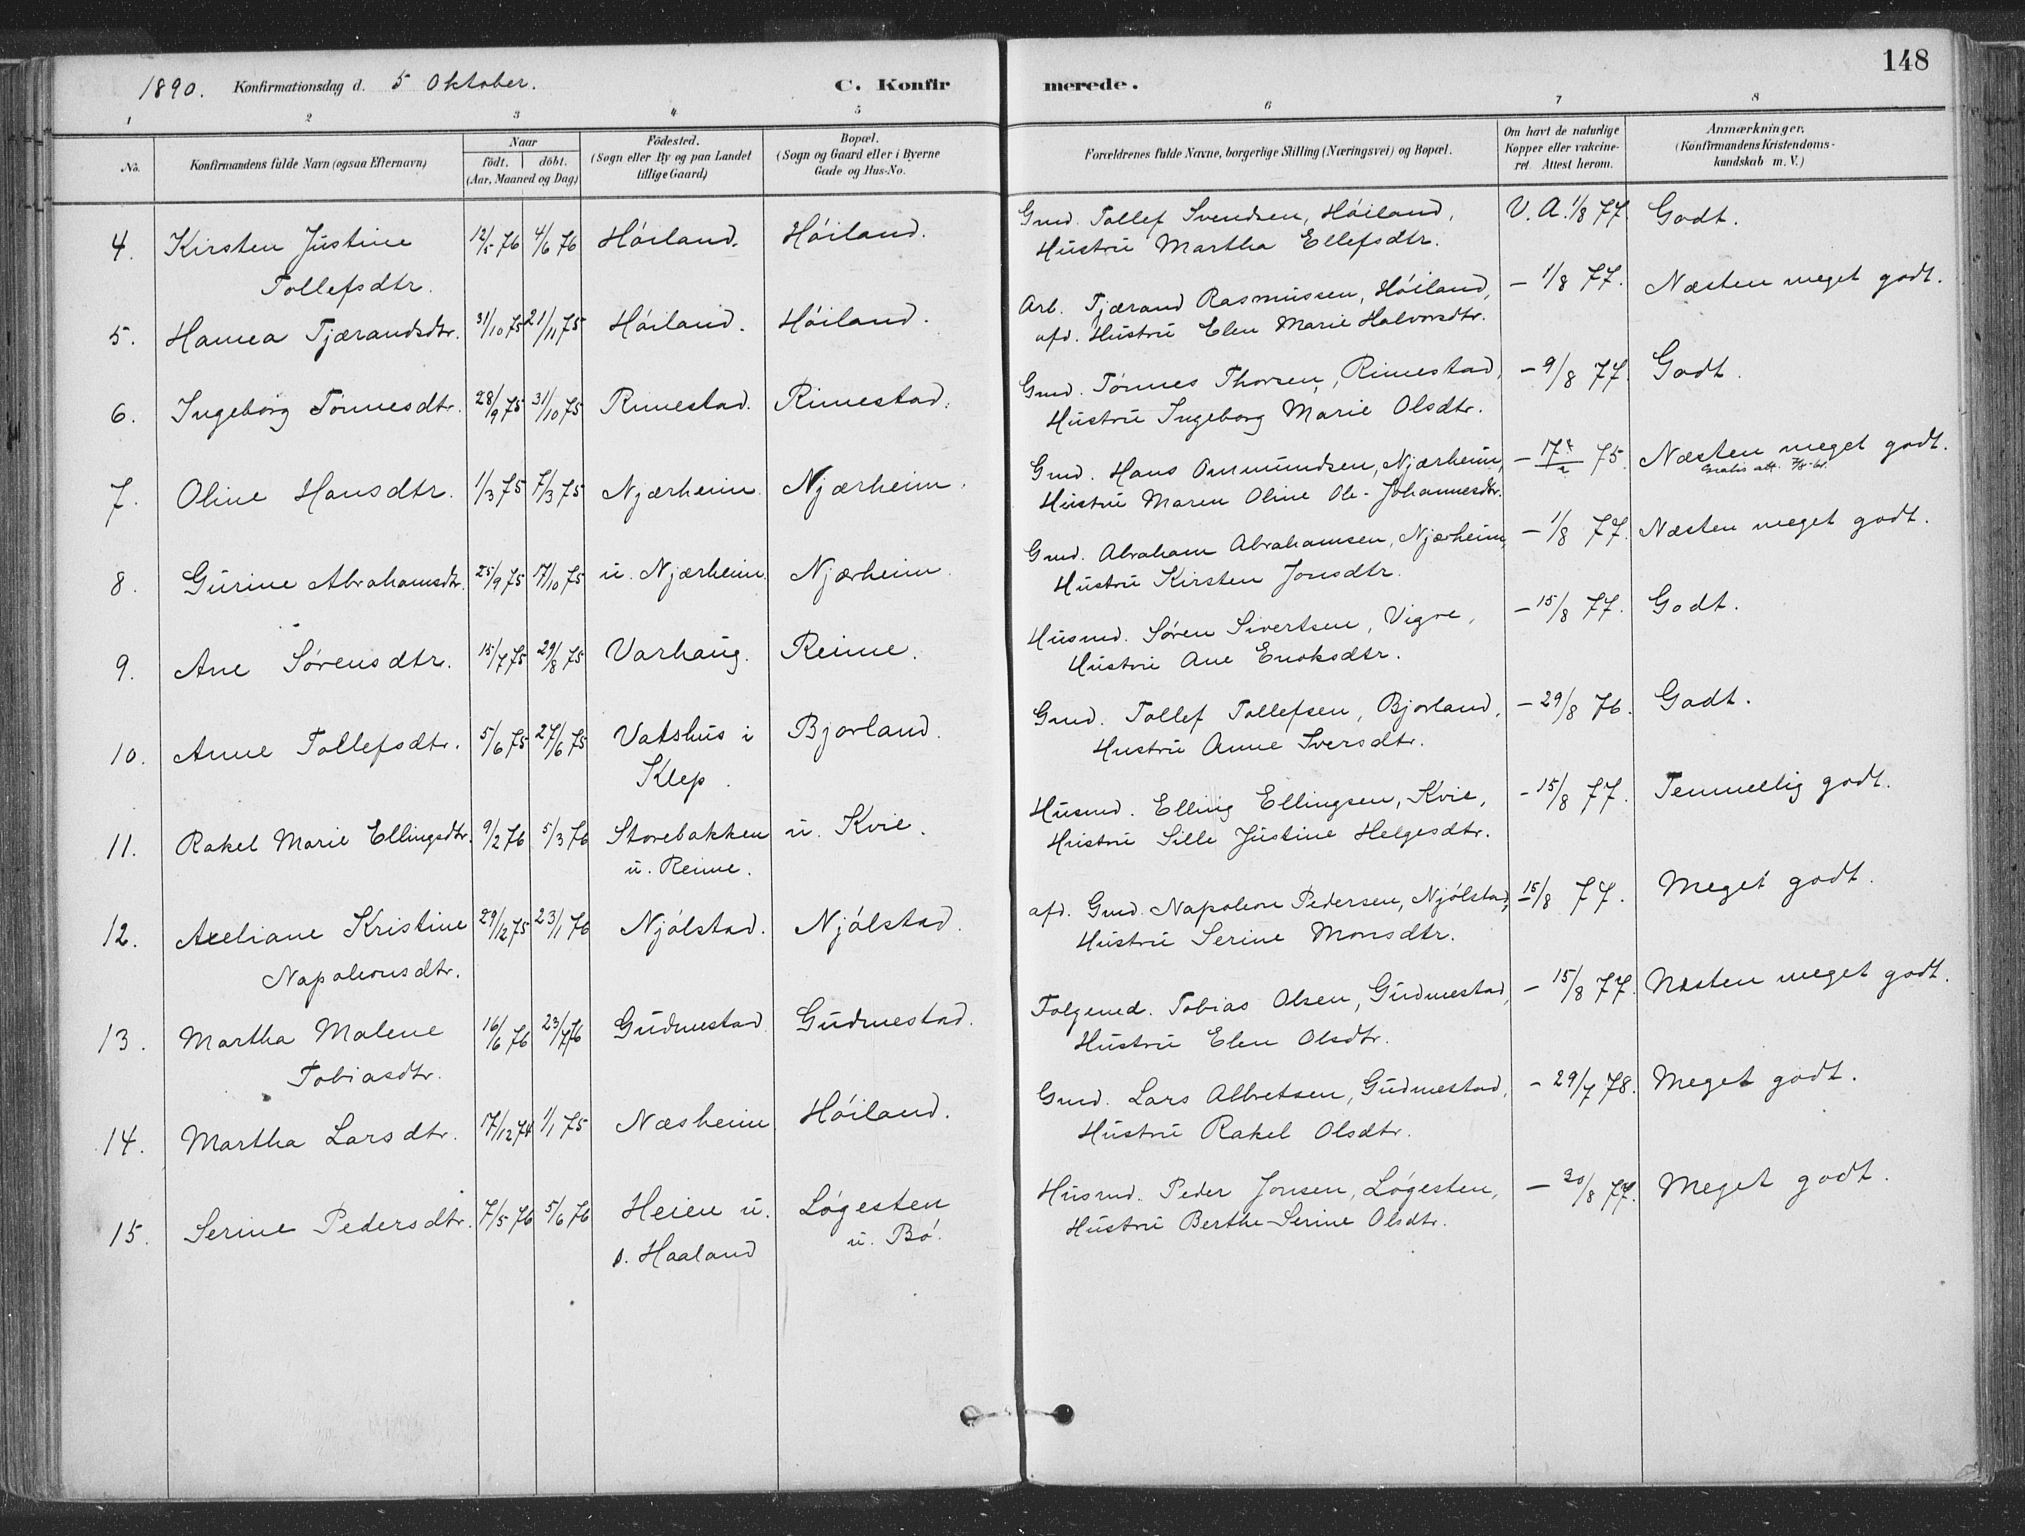 148
1890. Konfirmationsdag d. 5 Oktober. C. Konfir merede.
1 2 3 4 5 6 7 8
No. Konfirmandens fulde Navn (ogsaa Efternavn) Naar födt. döbt. (Aar, Maaned og Dag) Födested. (Sogn eller By og paa Landet tillige Gaard) Bopæl. (Sogn og Gaard eller i Byerne Gade og Hus-No. Forældrenes fulde Navne, borgerlige Stilling (Næringsvei) og Bopæl. Om havt de naturlige Kopper eller vakcineret. Attest herom. Anmærkninger. (Konfirmandens Kristendomskundskab m. V.)
4. Kirsten Justine 12/5 76 4/6 76 Höiland. Höiland. Gmd. Tollef Svendsen, Höiland, V. A. 1/8 77 Godt.
Tollefsdtr. Hustru Martha Ellefsdtr.
5. Hanna Tjærandsdtr. 31/10 75 21/11 75 Höiland. Höiland. Arb. Tjærand Rasmussen, Höiland, - 1/8 77. Næsten meget godt.
afd. Hustru Elen Marie Halvorsdtr.
6. Ingeborg Tönnesdtr. 28/9 75 31/10 75 Rimestad. Rimestad. Gmd. Tönnes Thorsen, Rimestad, - 9/8 77. Godt.
Hustru Ingeborg Marie Olsdtr.
7. Oline Hansdtr. 1/3 75 7/3 75 Njærheim. Njærheim. Gmd. Hans Ommundsen, Njærheim, - 75. Næsten meget godt.
Hustru Maren Oline Ole-Johannesdtr.
8. Gurine Abrahamsdtr. 25/9 75 17/10 75 u. Njærheim. Njærheim. Gmd. Abraham Abrahamsen, Njærheim, - 1/8 77. Næsten meget godt.
Hustru Kirsten Jonsdtr.
9. Ane Sörensdtr. 15/7 75 29/8 75 Varhaug. Reime. Husmd. Søren Sivertsen, Vigre, - 15/8 77. Godt.
Hustru Ane Enoksdtr.
10. Anne Tollefsdtr. 5/6 75 27/6 75 Vatshus i Bjorland. Gmd. Tollef Tollefsen, Bjorland, - 29/8 76. Godt.
Klep. Hustru Anne Iversdtr.
11. Rakel Marie Ellingsdtr. 9/2 76 5/3 76 Storebakken u. Kvie. Husmd. Elling Ellingsen, Kvie, - 15/8 77. Temmelig godt.
u. Reime. Hustru Sille Justine Helgesdtr.
12. Axeliane Kristine 29/12 75 23/1 76 Njólstad. Njólstad. afd. Gmd. Napoleon Pedersen, Njólstad, - 15/8 77. Meget godt.
Napoleonsdtr. Hustru Serine Monsdtr.
13. Martha Malene 16/6 76 23/7 76 Gudmestad Gudmestad. Folgemd. Tobias Olsen, Gudmestad, - 15/8 77. Næsten meget godt.
Tobiasdtr. Hustru Elen Olsdtr.
14. Martha Larsdtr. 17/12 74 1/1 75 Næsheim Höiland. Gmd. Lars Albretsen, Gudmestad, - 29/7 78. Meget godt.
Hustru Rakel Olsdtr.
15. Serine Pedersdtr. 7/5 76 5/6 76 Heien u. Løgesten Husmd. Peder Jonsen, Løgesten, - 30/8 77. Meget godt.
s. Haaland u. Bö. Hustru Berthe-Serine Olsdtr.